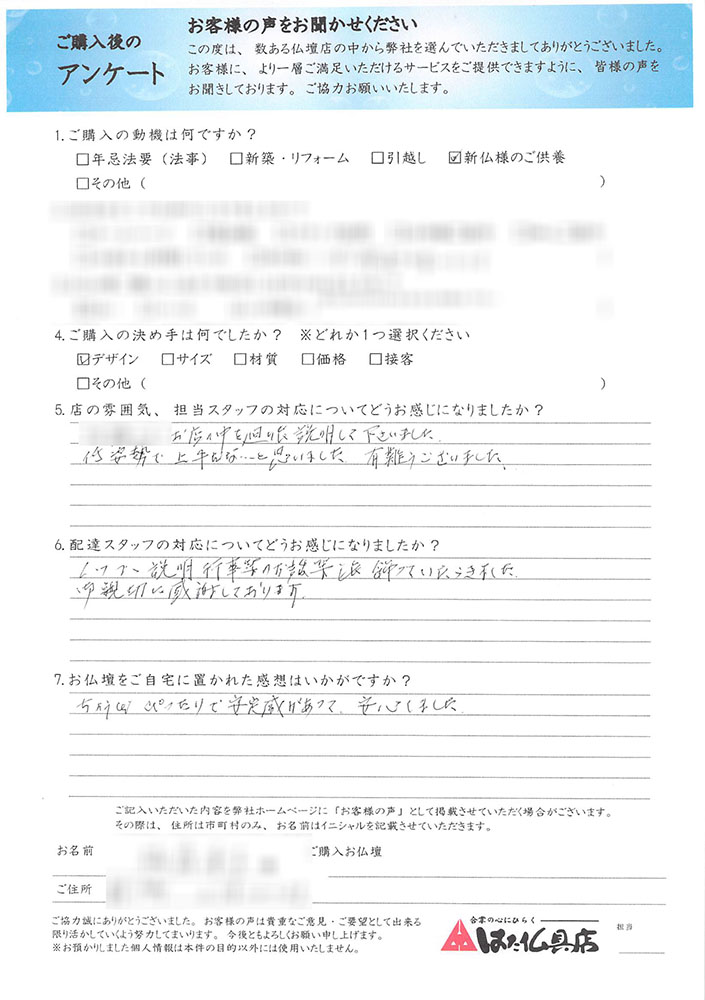 お客様の声をお聞かせください
ご購入後の
アンケート
この度は、数ある仏壇店の中から弊社を選んでいただきましてありがとうございました。
お客様に、より一層ご満足いただけるサービスをご提供できますように、皆様の声を
お聞きしております。ご協力お願いいたします。
1.ご購入の動機は何ですか?
□年忌法要(法事) □新築・リフォーム □引越し ☑新仏様のご供養
□その他( )
4.ご購入の決め手は何でしたか? ※どれか1つ選択ください
☑デザイン □サイズ □材質 □価格 □接客
□その他( )
5.店の雰囲気、担当スタッフの対応についてどうお感じになりましたか?
お店の中を 説明して下さいました
姿勢で と思いました 有難うございました。
6.配達スタッフの対応についてどうお感じになりましたか?
説明 いただきました
御親切に感謝しております。
7.お仏壇をご自宅に置かれた感想はいかがですか?
ぴったりで 感があって、安心しました。
ご記入いただいた内容を弊社ホームページに「お客様の声」として掲載させていただく場合がございます。
その際は、住所は市町村のみ、お名前はイニシャルを記載させていただきます。
お名前 ご購入お仏壇
ご住所
ご協力誠にありがとうございました。お客様の声は貴重なご意見・ご要望として出来る
限り活かしていくよう努力してまいります。今後ともよろしくお願い申し上げます。
※お預かりしました個人情報は本件の目的以外には使用いたしません。
合掌の心にひらく
はた仏具店
担当